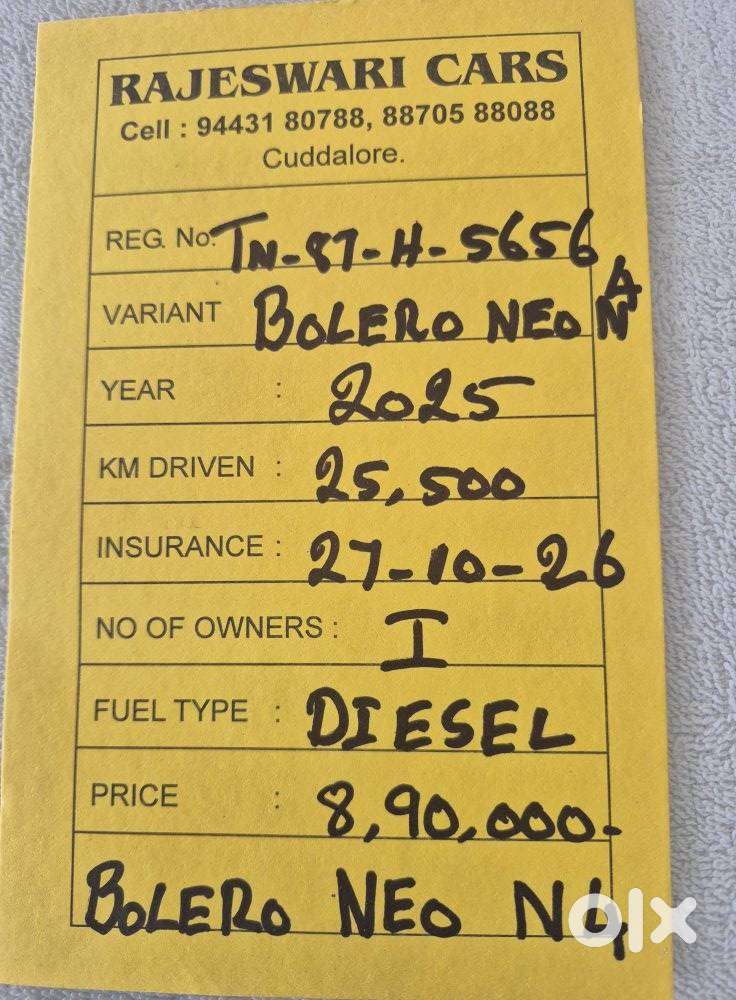 RAJESWARI CARS
Cell : 94431 80788, 88705 88088
Cuddalore.
REG. No: TN-87-H-5656
VARIANT BOLERO NEO N4
YEAR : 2025
KM DRIVEN : 25,500
INSURANCE : 27-10-26
NO OF OWNERS : I
FUEL TYPE : DIESEL
PRICE : 8,90,000-
BOLERO NEO N4
olx